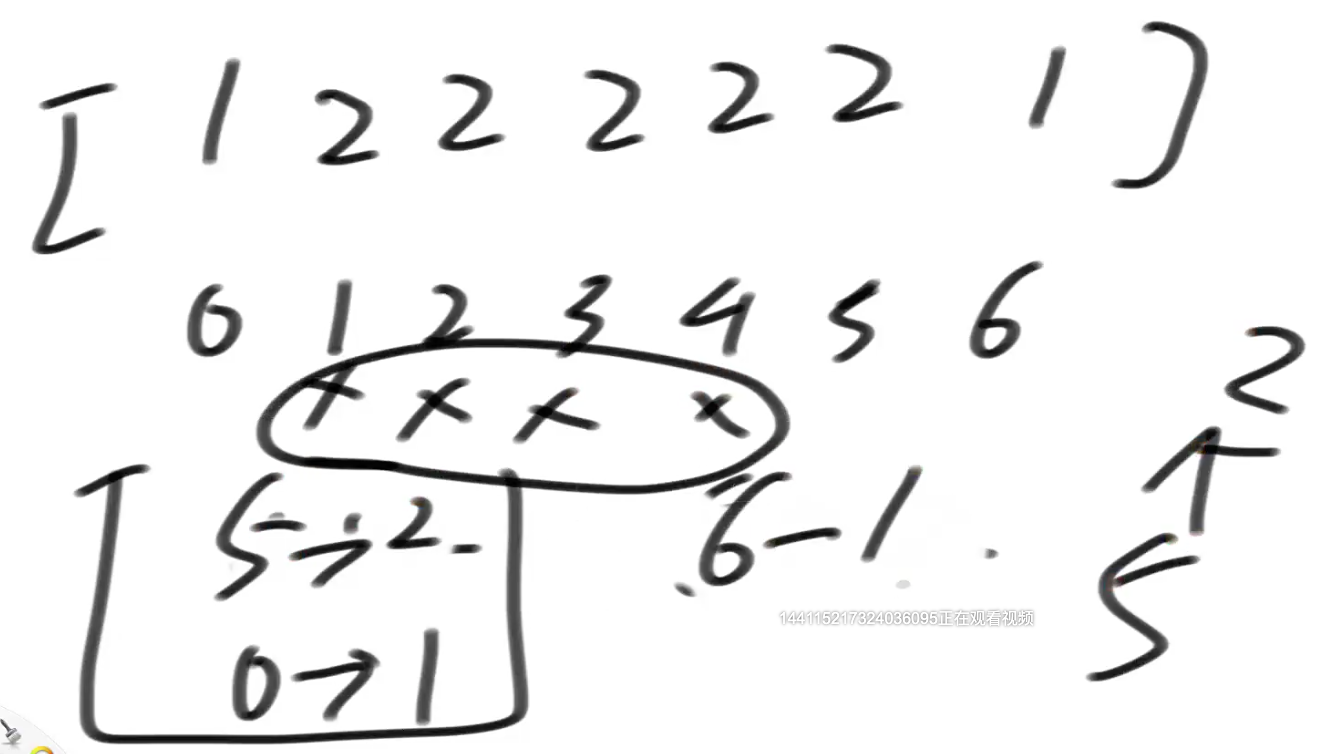 [ 1 2 2 2 2 2 1 ]
0 1 2 3 4 5 6
2
× × × ×
5 → 2 6 - 1
5
144115217324036095正在观看视频
0 → 1